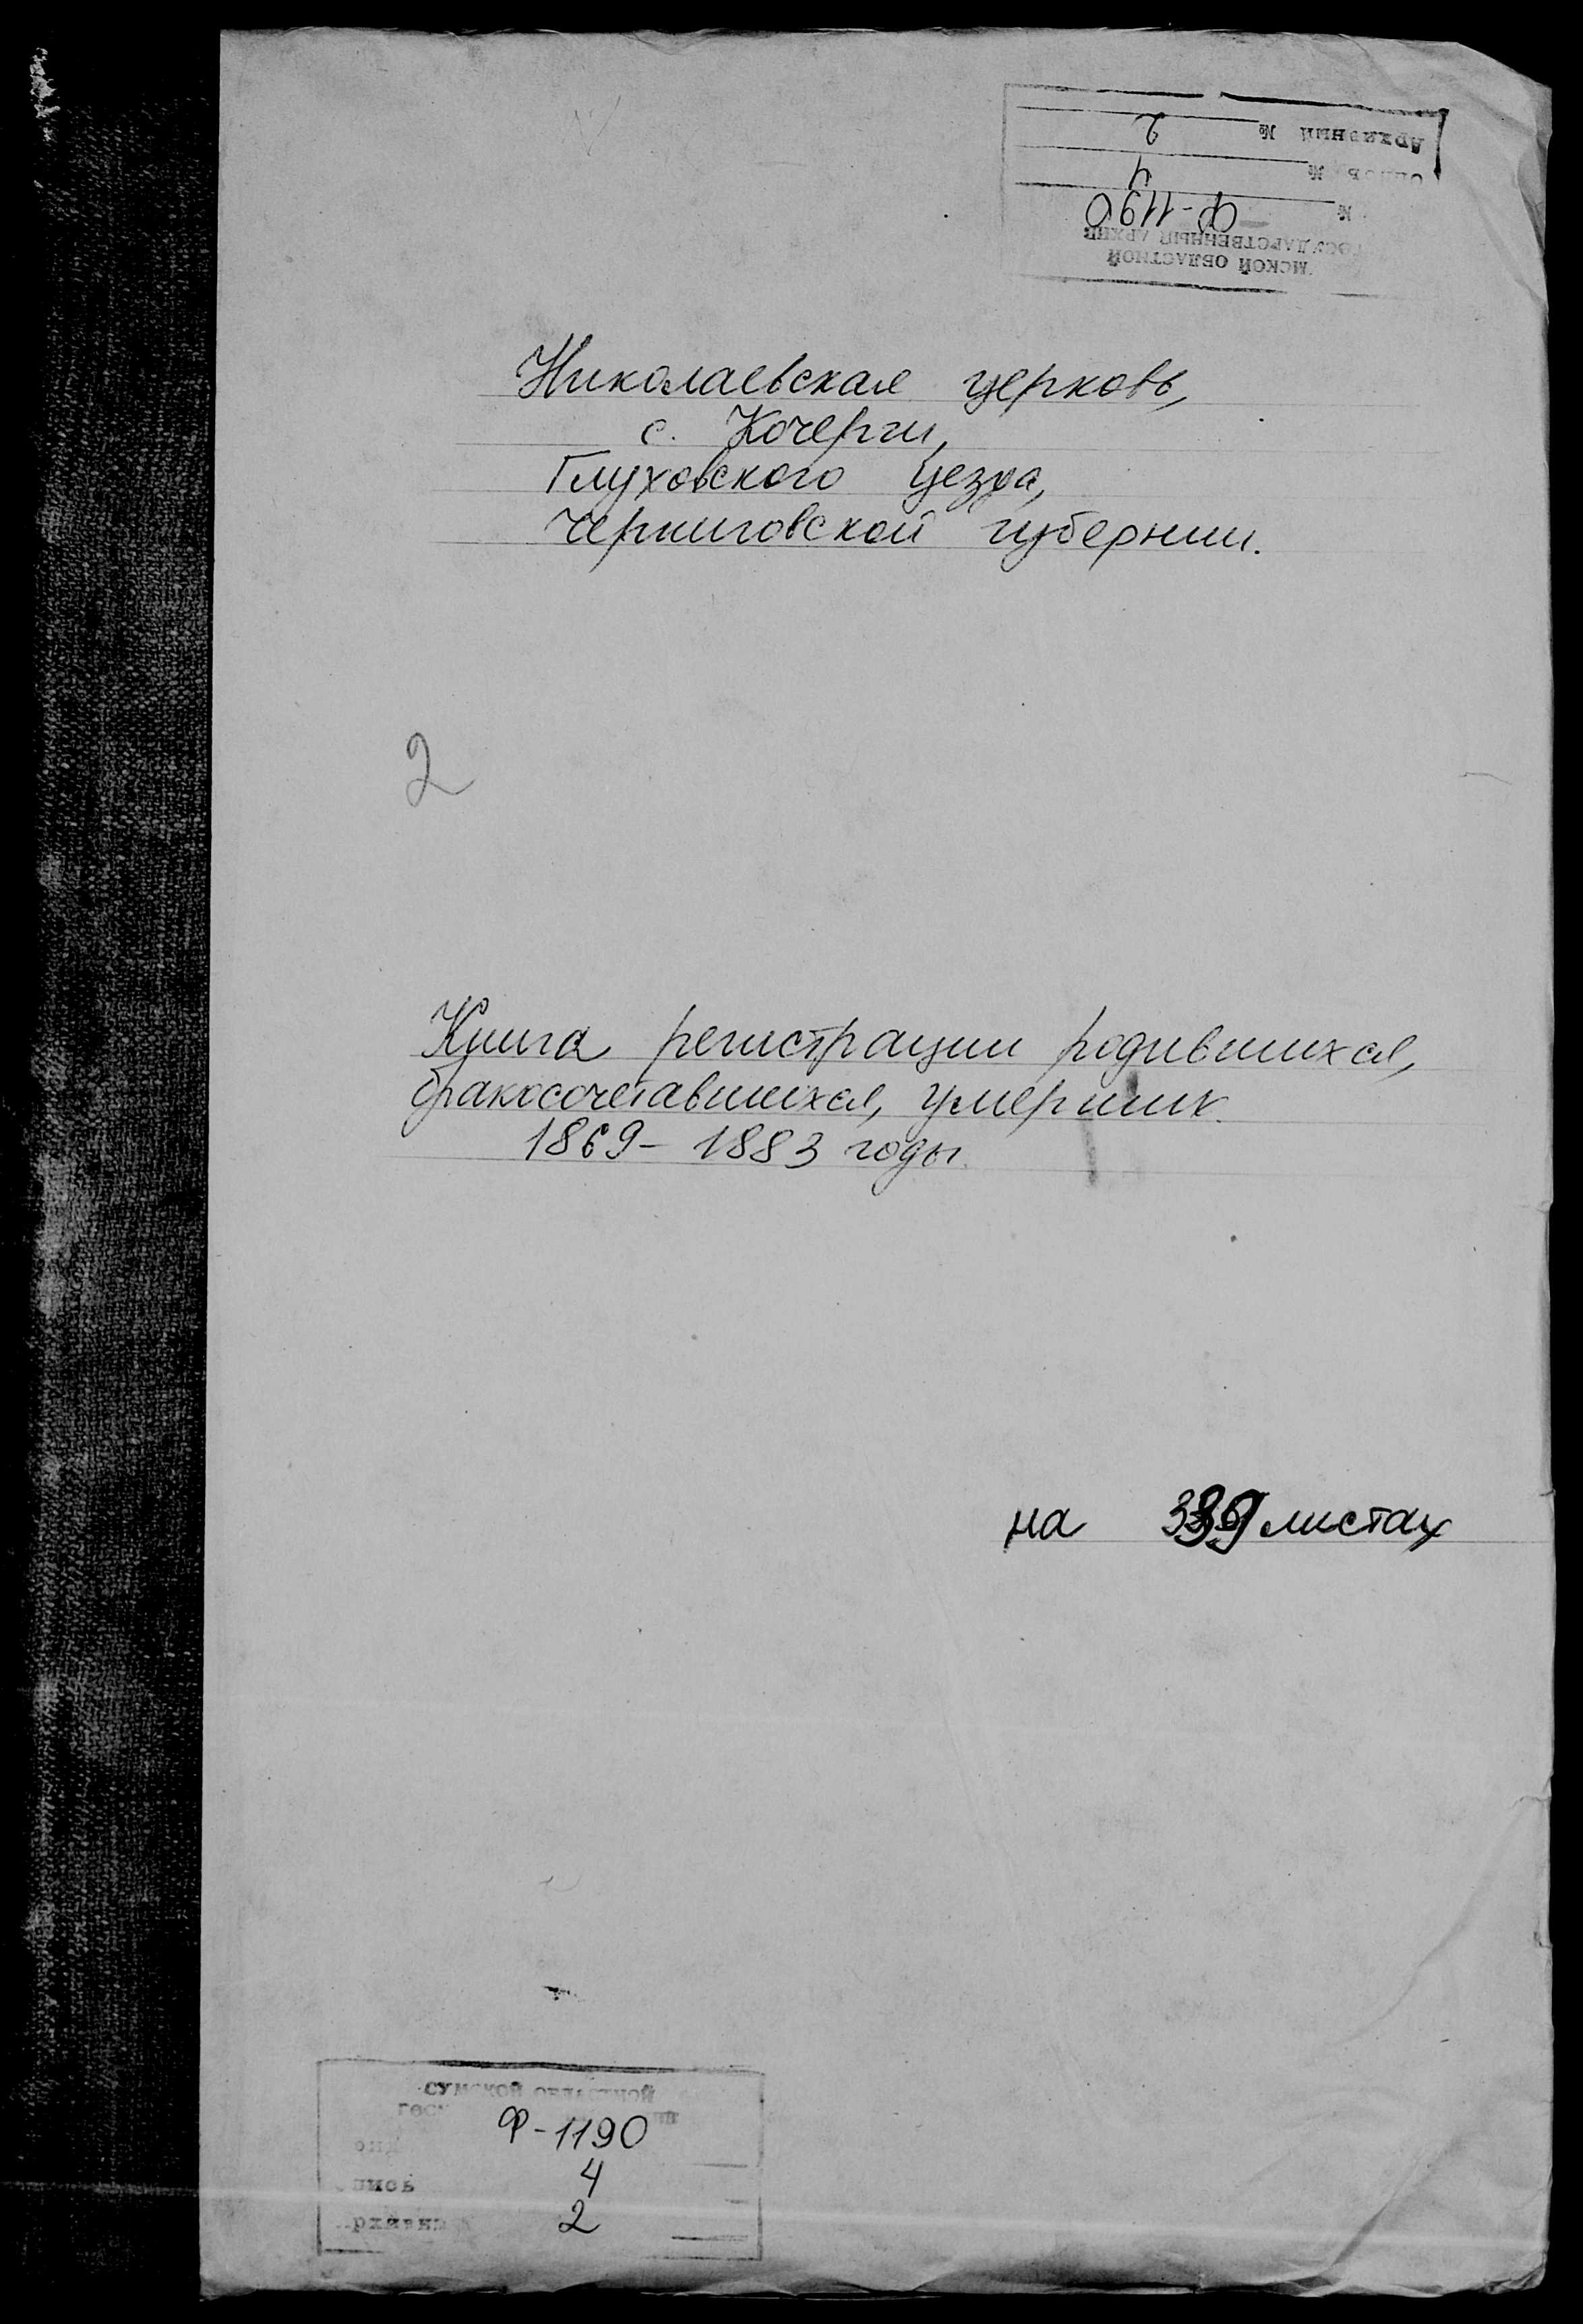 Архивный № 2
№ 4
№ Ф-1190
ГОСУДАРСТВЕННЫЙ АРХИВ
МСКОЙ ОБЛАСТНОЙ
Николаевская церковь,
с. Кочерги,
Глуховского уезда,
Черниговской губернии.
2
Книга регистрации родившихся,
бракосочетавшихся, умерших.
1869-1883 годы.
на 339 листах
СУМСКОЙ ОБЛАСТНОЙ
Ф-1190
пись 4
рхивн 2